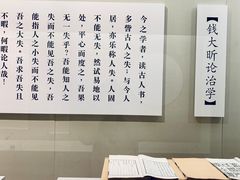 【钱大昕论治学】
今之学者，读古人书，
多訾古人之失；与今人
居，亦乐称人失。人固
不能无失，然试易地以
处，平心而度之，吾果
无一失乎？吾能知人之
失而不能见吾之失，吾
能指人之小失而不能见
吾之大失。吾求吾失且
不暇，何暇论人哉！